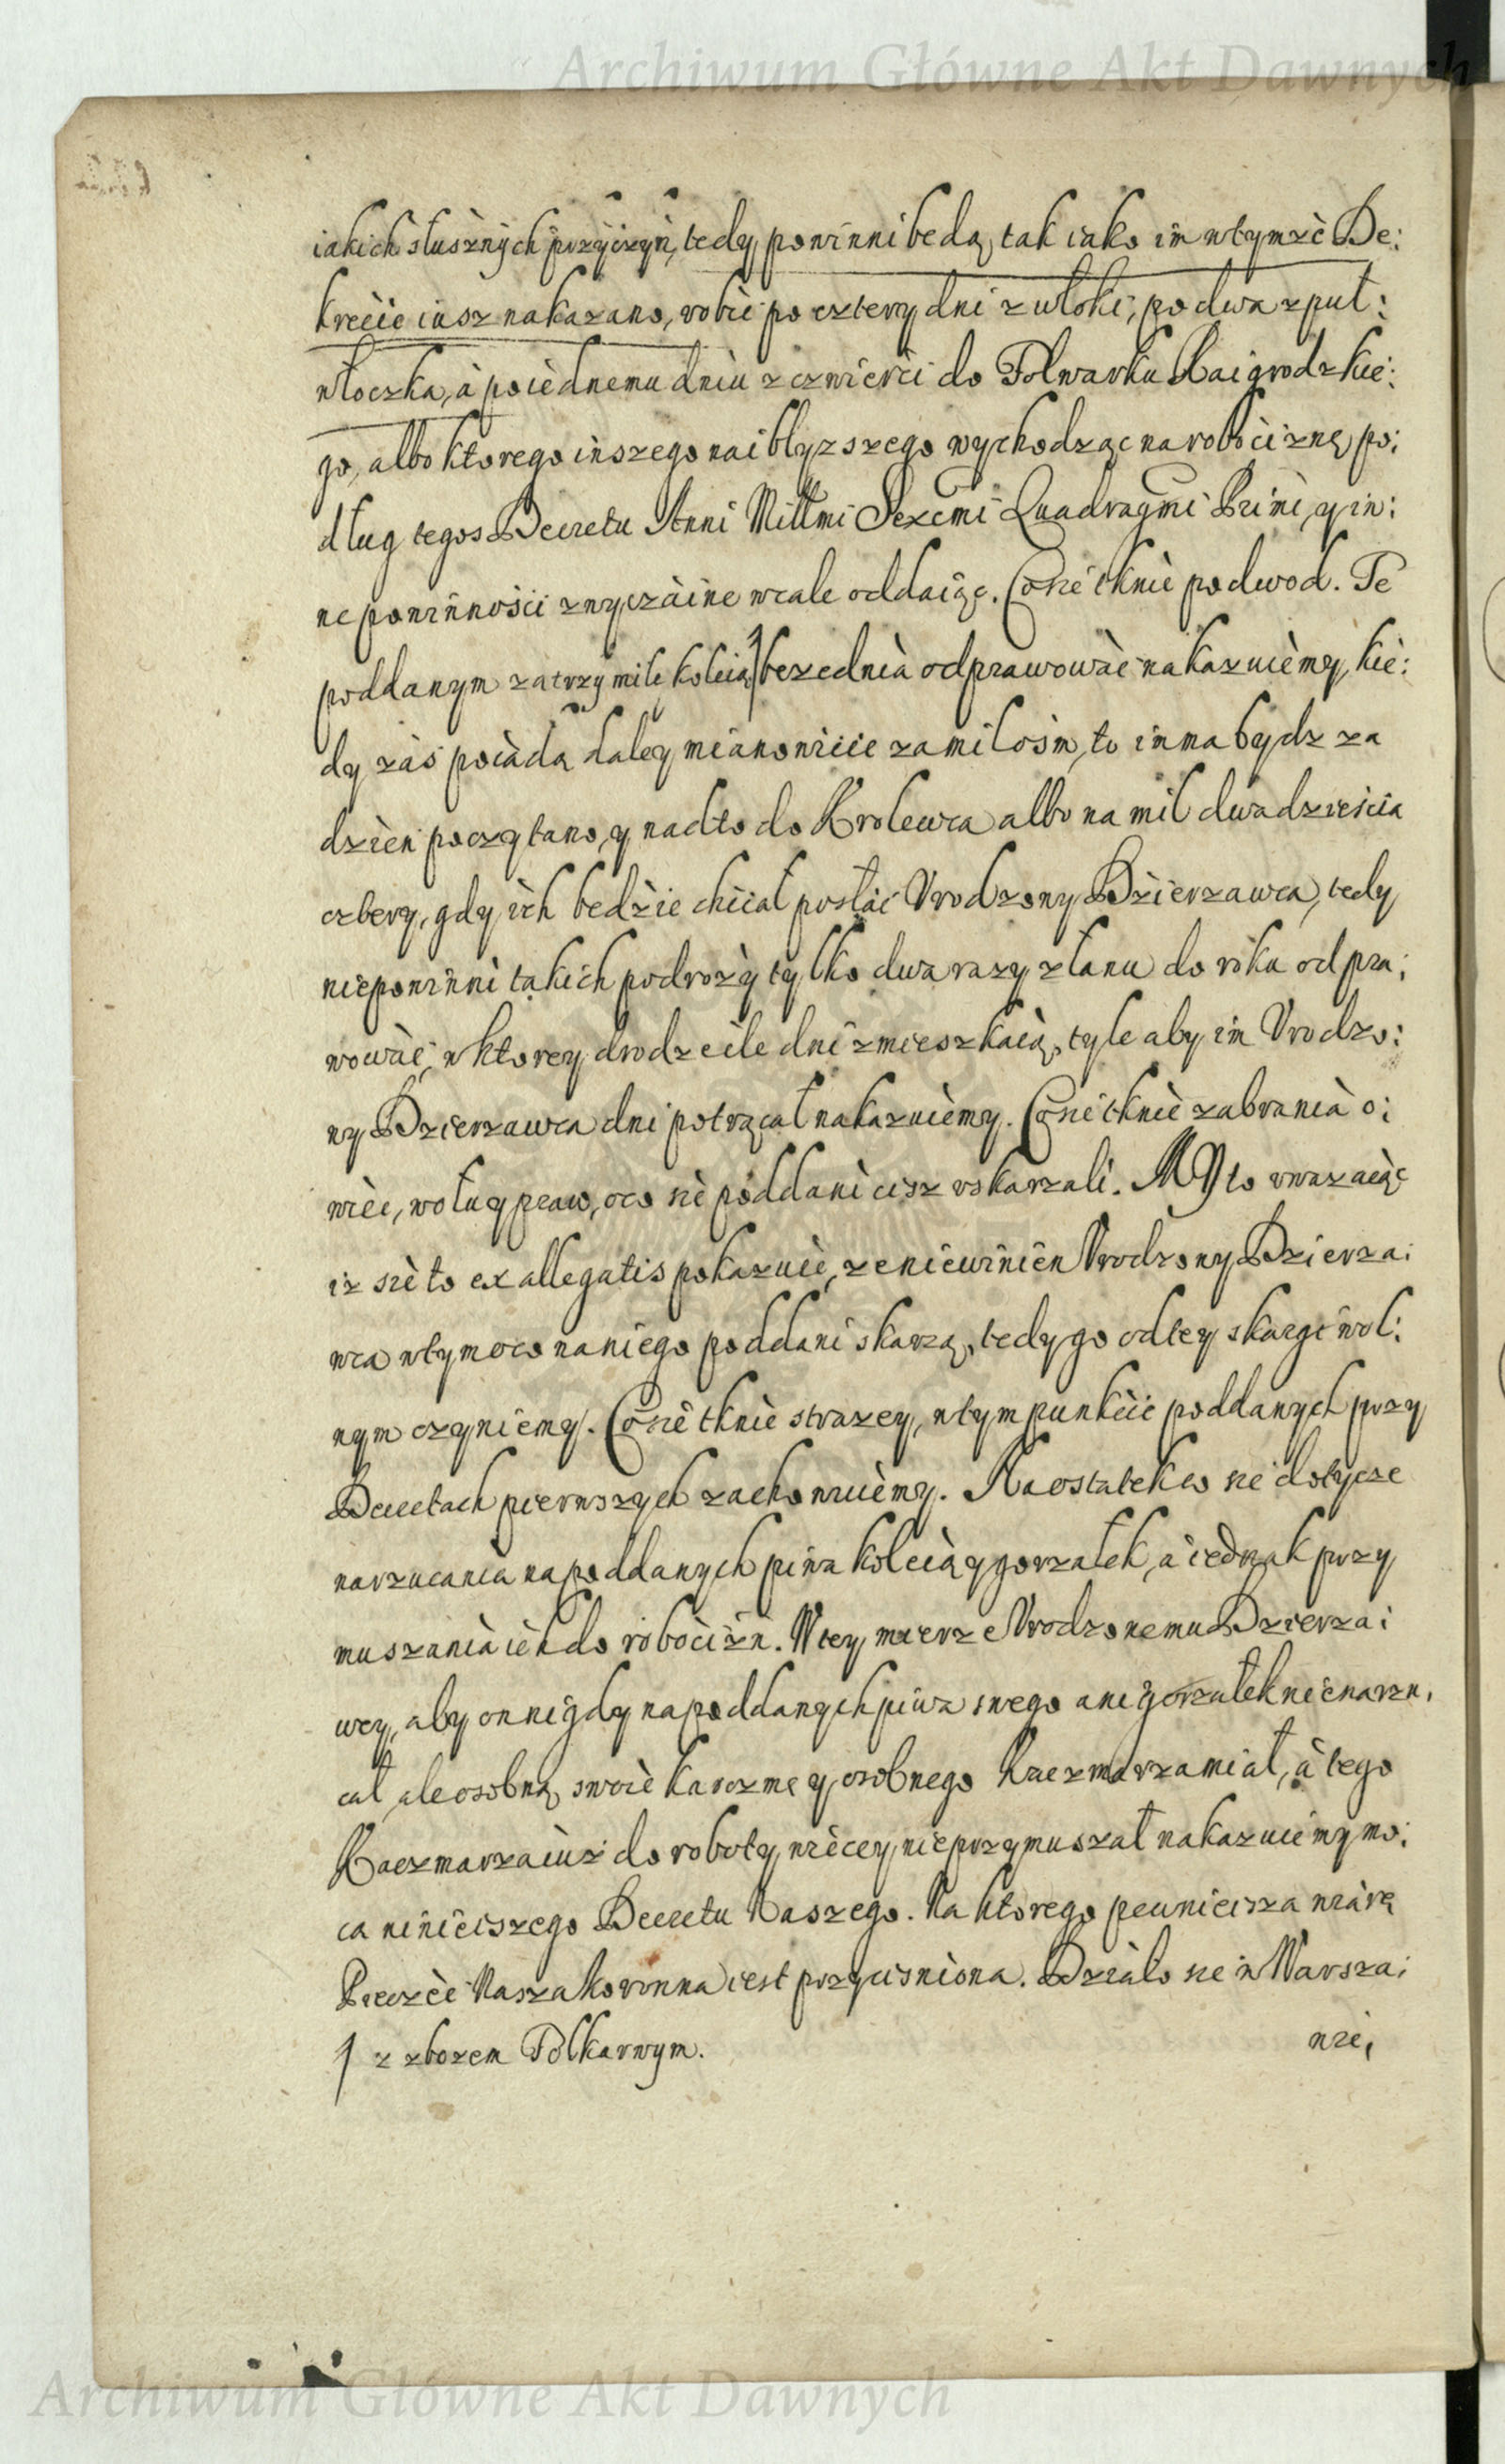 Archiwum Główne Akt Dawnych
iakich słusznych przyczyn, tedy powinni beda, tak iako im wtymze De:
krecie iusz nakazano, robic po cztery dni z włoki, po dwa z puł:
włoczka, a poiednemu dniu z czwierci do Folwarku Raigrodzkie:
go, albo ktorego inszego naiblyzszego wychodząc na robociznę, po:
dług tegosz Decretu Anni Millmi Sexcmi Quadragmi Primi, y in:
ne powinnosci zwyczaine wcale oddaiąc. Co sie tknie podwod. Te
poddanym za trzy mile koleią ꝉ beze dnia odprawowac nakazuiemy, kie:
dy zas poiada daley mianowicie za mil osm, to im ma bydz za
dzien poczytano, y nadto do Krolewca albo na mil dwadziescia
cztery, gdy ich bedzie chciał posłac Vrodzony Dzierzawca, tedy
niepowinni takich podrozy tylko dwa razy ztanu do roku odpra:
wowac, w ktorey drodze ile dni zmieszkaią, tyle aby im Vrodzo:
ny Dzierzawca dni potrącał nakazuiemy. Co sie tknie zabrania o:
wiec, wołu y praw, oco sie poddani cisz vskarzali. MY to vwazaiąc
iz sie to ex allegatis pokazuie, ze niewinien Vrodzony Dzierza:
wca wtym oco na niego poddani skarzą, tedy go od tey skargi wol:
nym czyniemy. Co sie tknie strazey, w tym punkcie poddanych przy
Decretach pierwszych zachowuiemy. Na ostatek co sie dotycze
narzucania na poddanych piwa koleią y gorzałek, a iednak przy
muszania ich do robocizn. W tey mierze Vrodzonemu Dzierza:
wcy, aby on nigdy na poddanych piwa swego ani gorzałek nie narzu:
cał, ale osobną swoie karczmę y osobnego Kaczmarza miał, a tego
Kaczmarza iuz do roboty wiecey nieprzymuszał nakazuiemy mo:
cą ninieiszego Decretu Naszego. Na ktorego pewnieisza wiarę
Pieczęc Nasza koronna iest przycisniona. Działo sie w Warsza:
wie,
ꝉ z zbozem Folkarwym.
Archiwum Główne Akt Dawnych